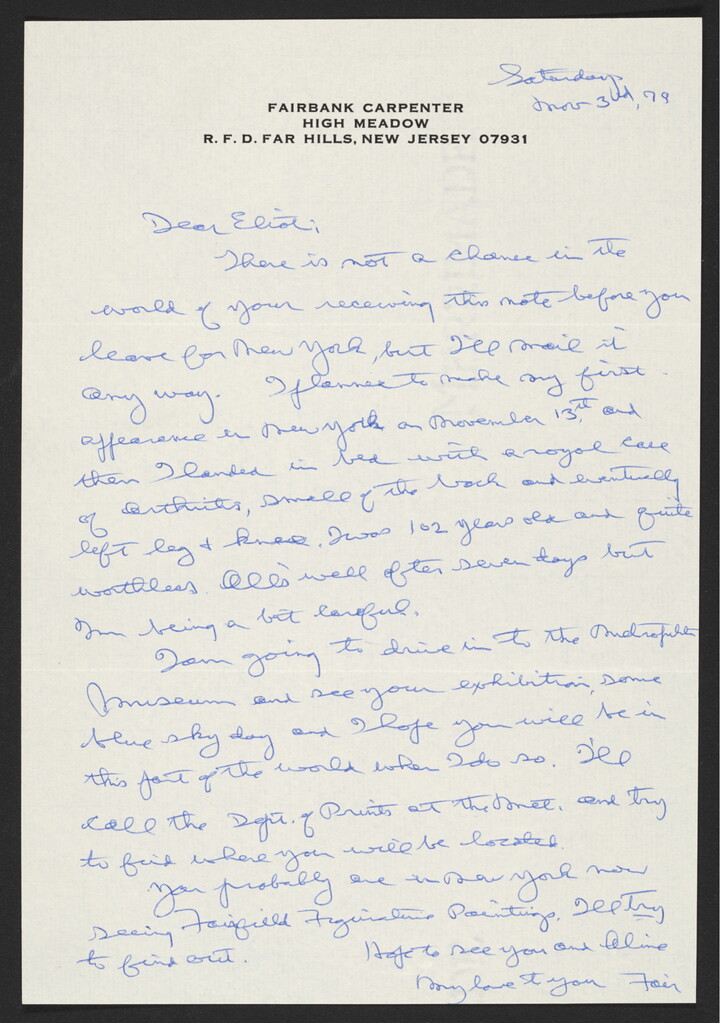 Saturday
Nov 3rd, 79
FAIRBANK CARPENTER
HIGH MEADOW
R. F. D. FAR HILLS, NEW JERSEY 07931
Dear Eliot:
There is not a chance in the
world of your receiving this note before you
leave for New York, but I'll mail it
any way. I planned to make my first
appearance in New York on November 13th, and
then I landed in bed with a royal case
of arthritis, small of the back and eventually
left leg + knee. I was 102 years old and quite
worthless. All's well after seven days but
I'm being a bit careful.
I am going to drive in to the Metropolitan
Museum and see your exhibition, some
blue sky day and I hope you will be in
this part of the world when I do so. I'll
call the Dept. of Prints at the Met. and try
to find where you will be located.
You probably are in New York now
seeing Fairfield Figurative Paintings. I'll try
to find out. Hope to see you and Aline
My love to you Fair